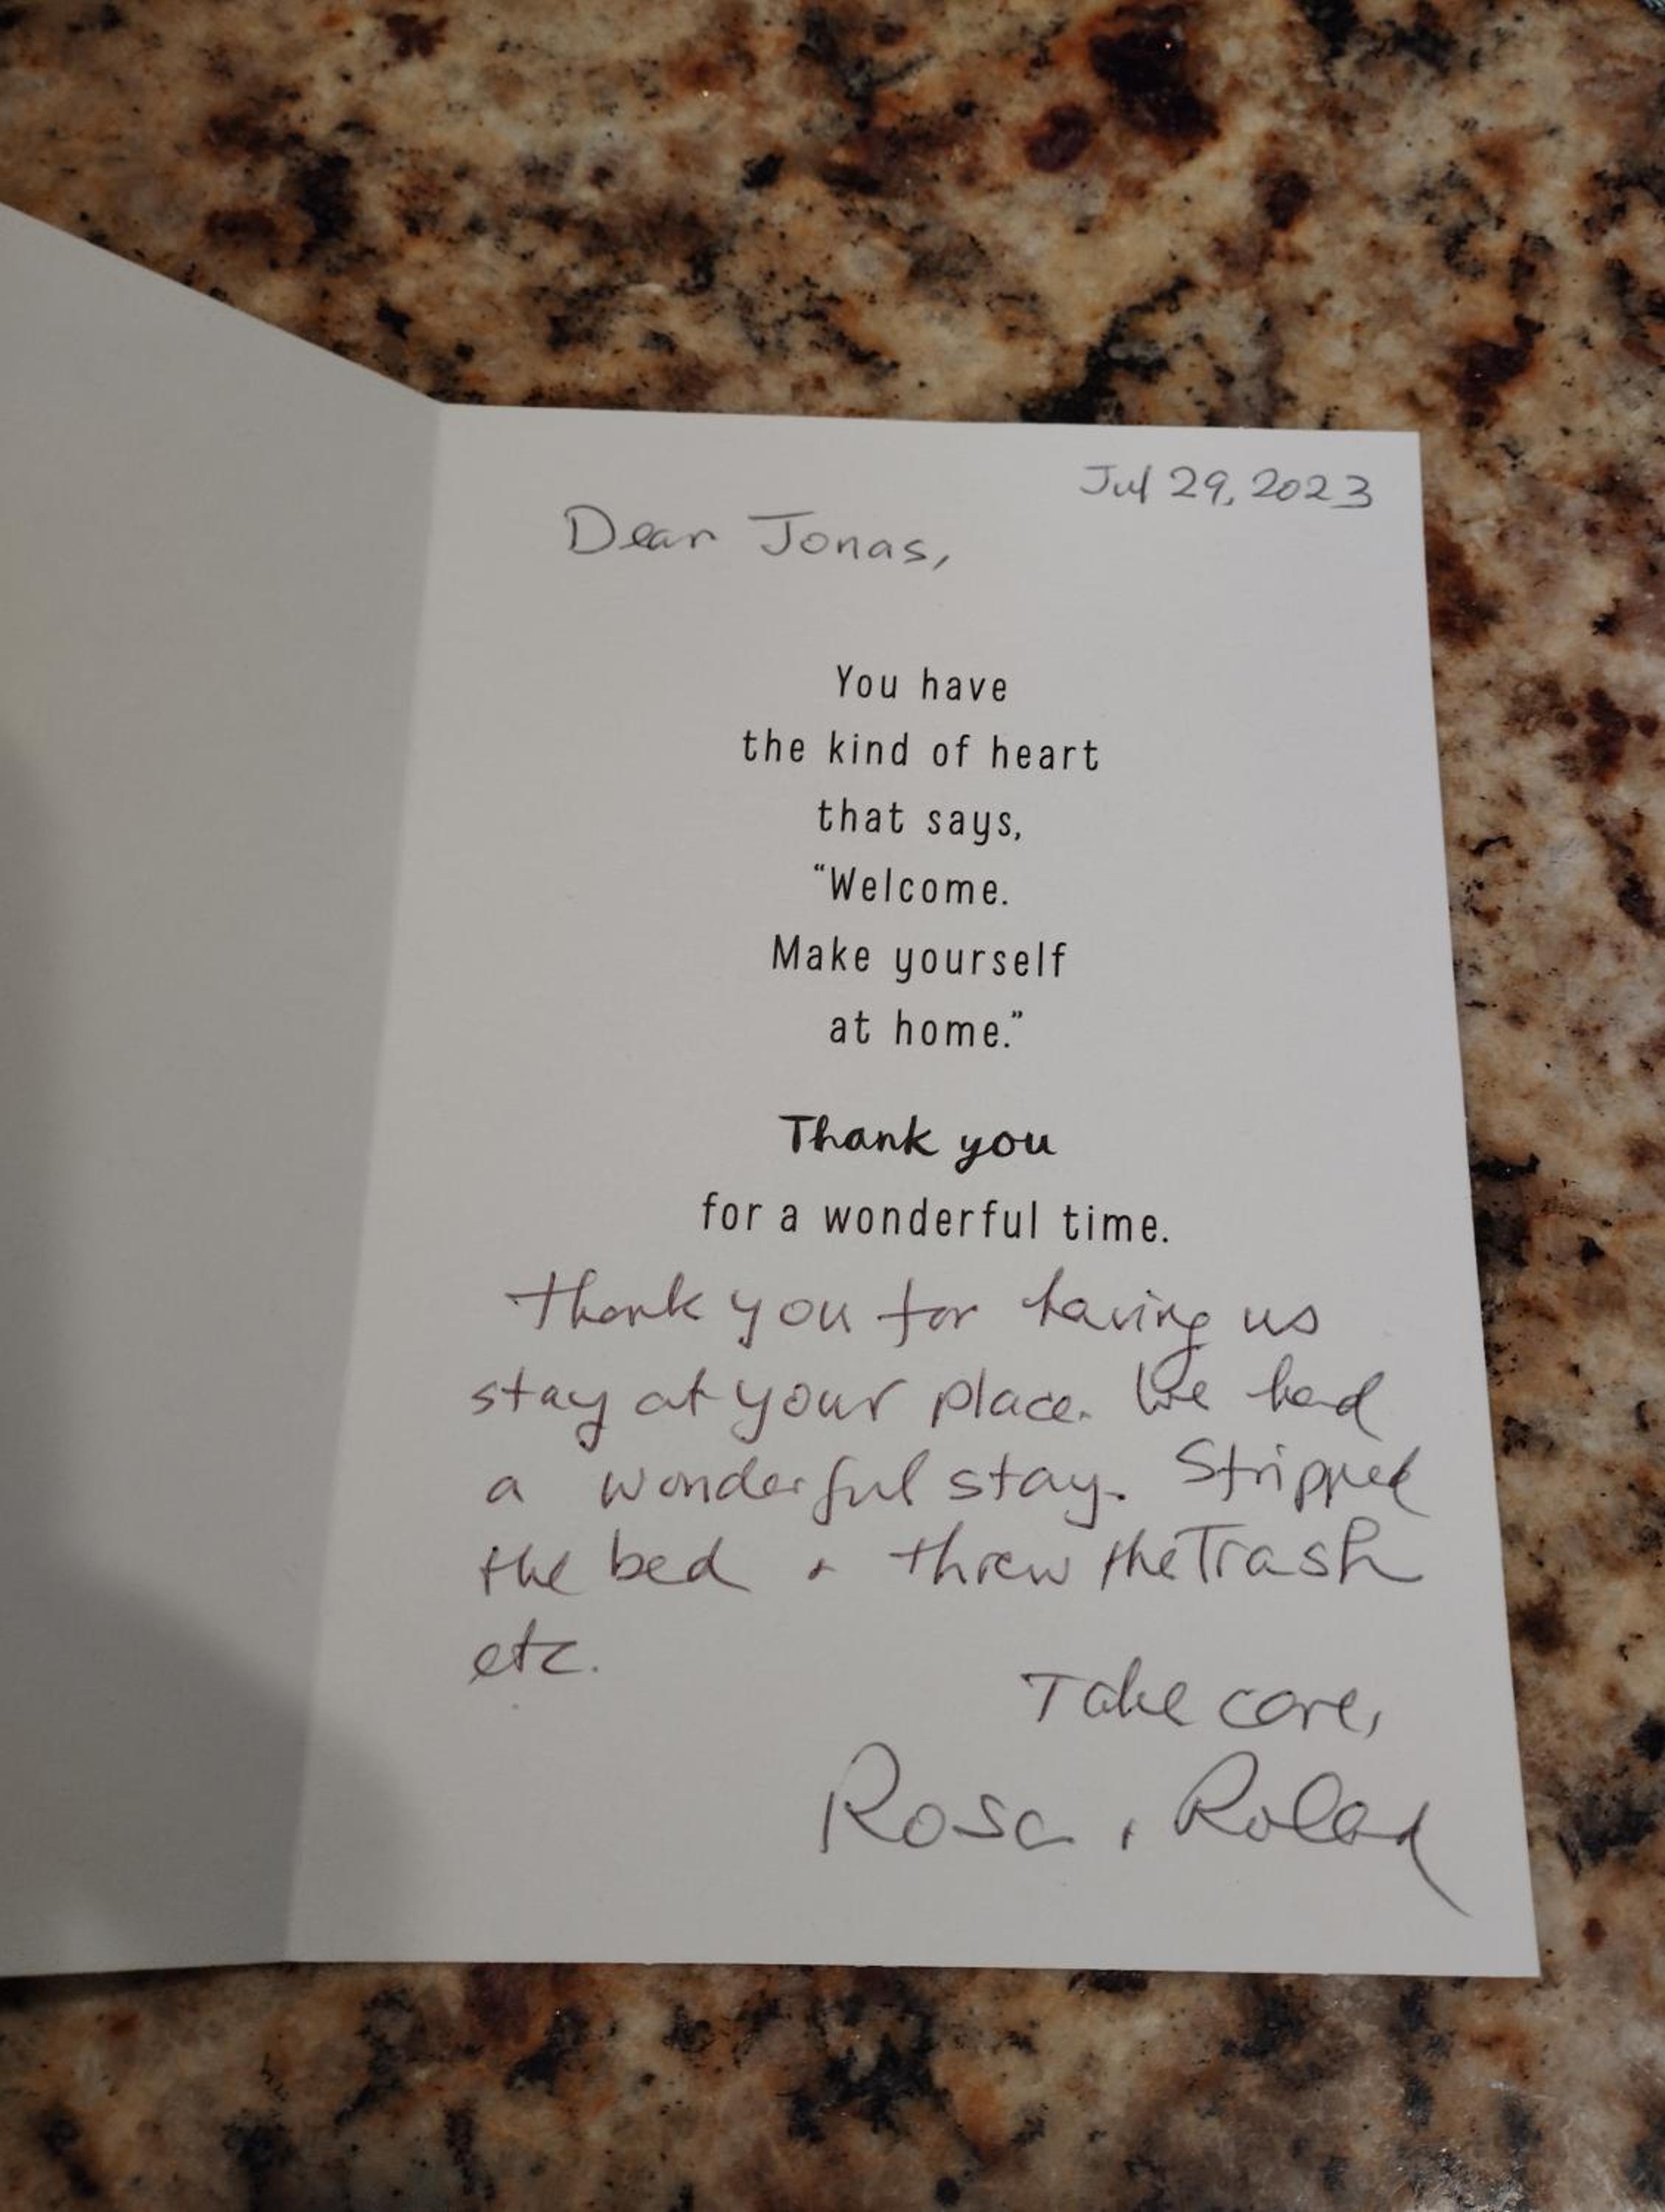 Jul 29, 2023
Dear Jonas,
You have
the kind of heart
that says,
“Welcome.
Make yourself
at home.”
Thank you
for a wonderful time.
Thank you for having us
stay at your place. We had
a wonderful stay. Stripped
the bed + threw the Trash
etc.
Take care,
Rosa